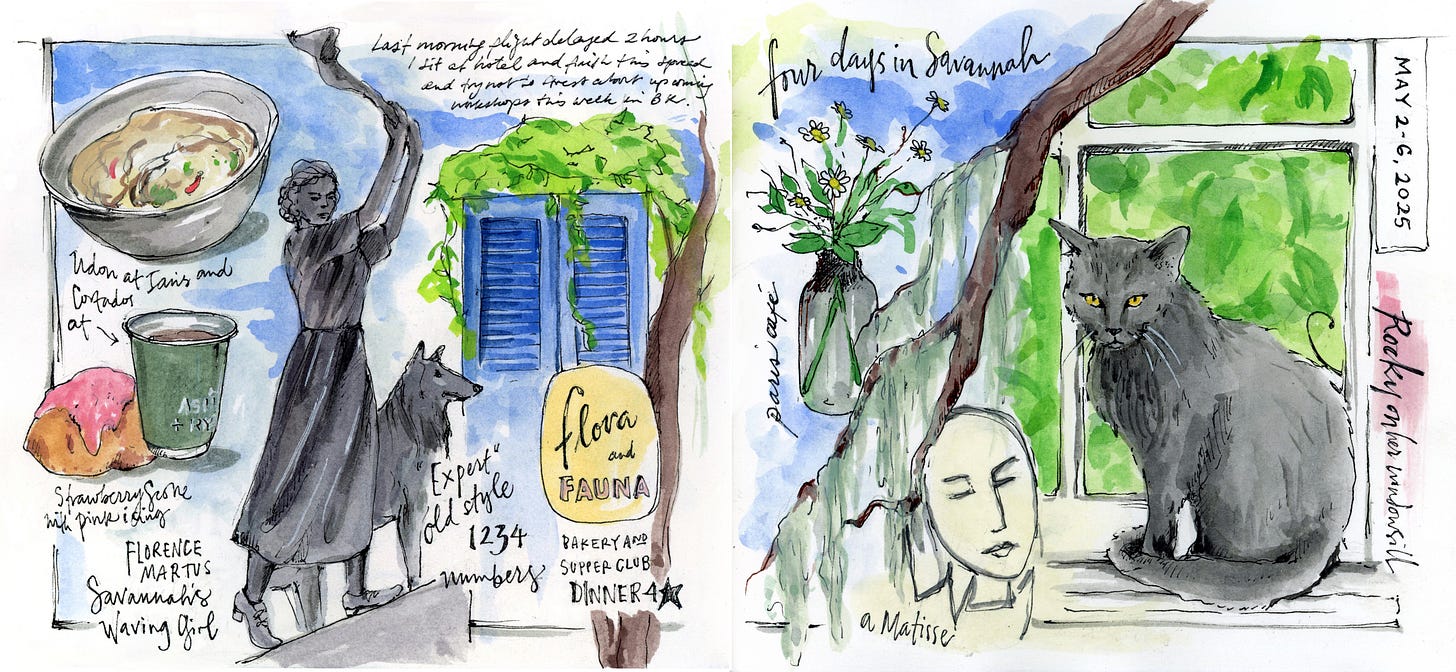 Last morning flight delayed 2 hours
I sit at hotel and finish this spread
and try not to stress about upcoming
workshops this week in BK.
Udon at Ianis and
Cortados
at
Strawberry Scone
with pink icing
FLORENCE
MARTUS
Savannah's
Waving Girl
"Expert"
old style
1234
numbers
flora
and
FAUNA
BAKERY AND
SUPPER CLUB
DINNER 4★
four days in Savannah
paris café
a Matisse
MAY 2-6, 2025
Rocky on her windowsill